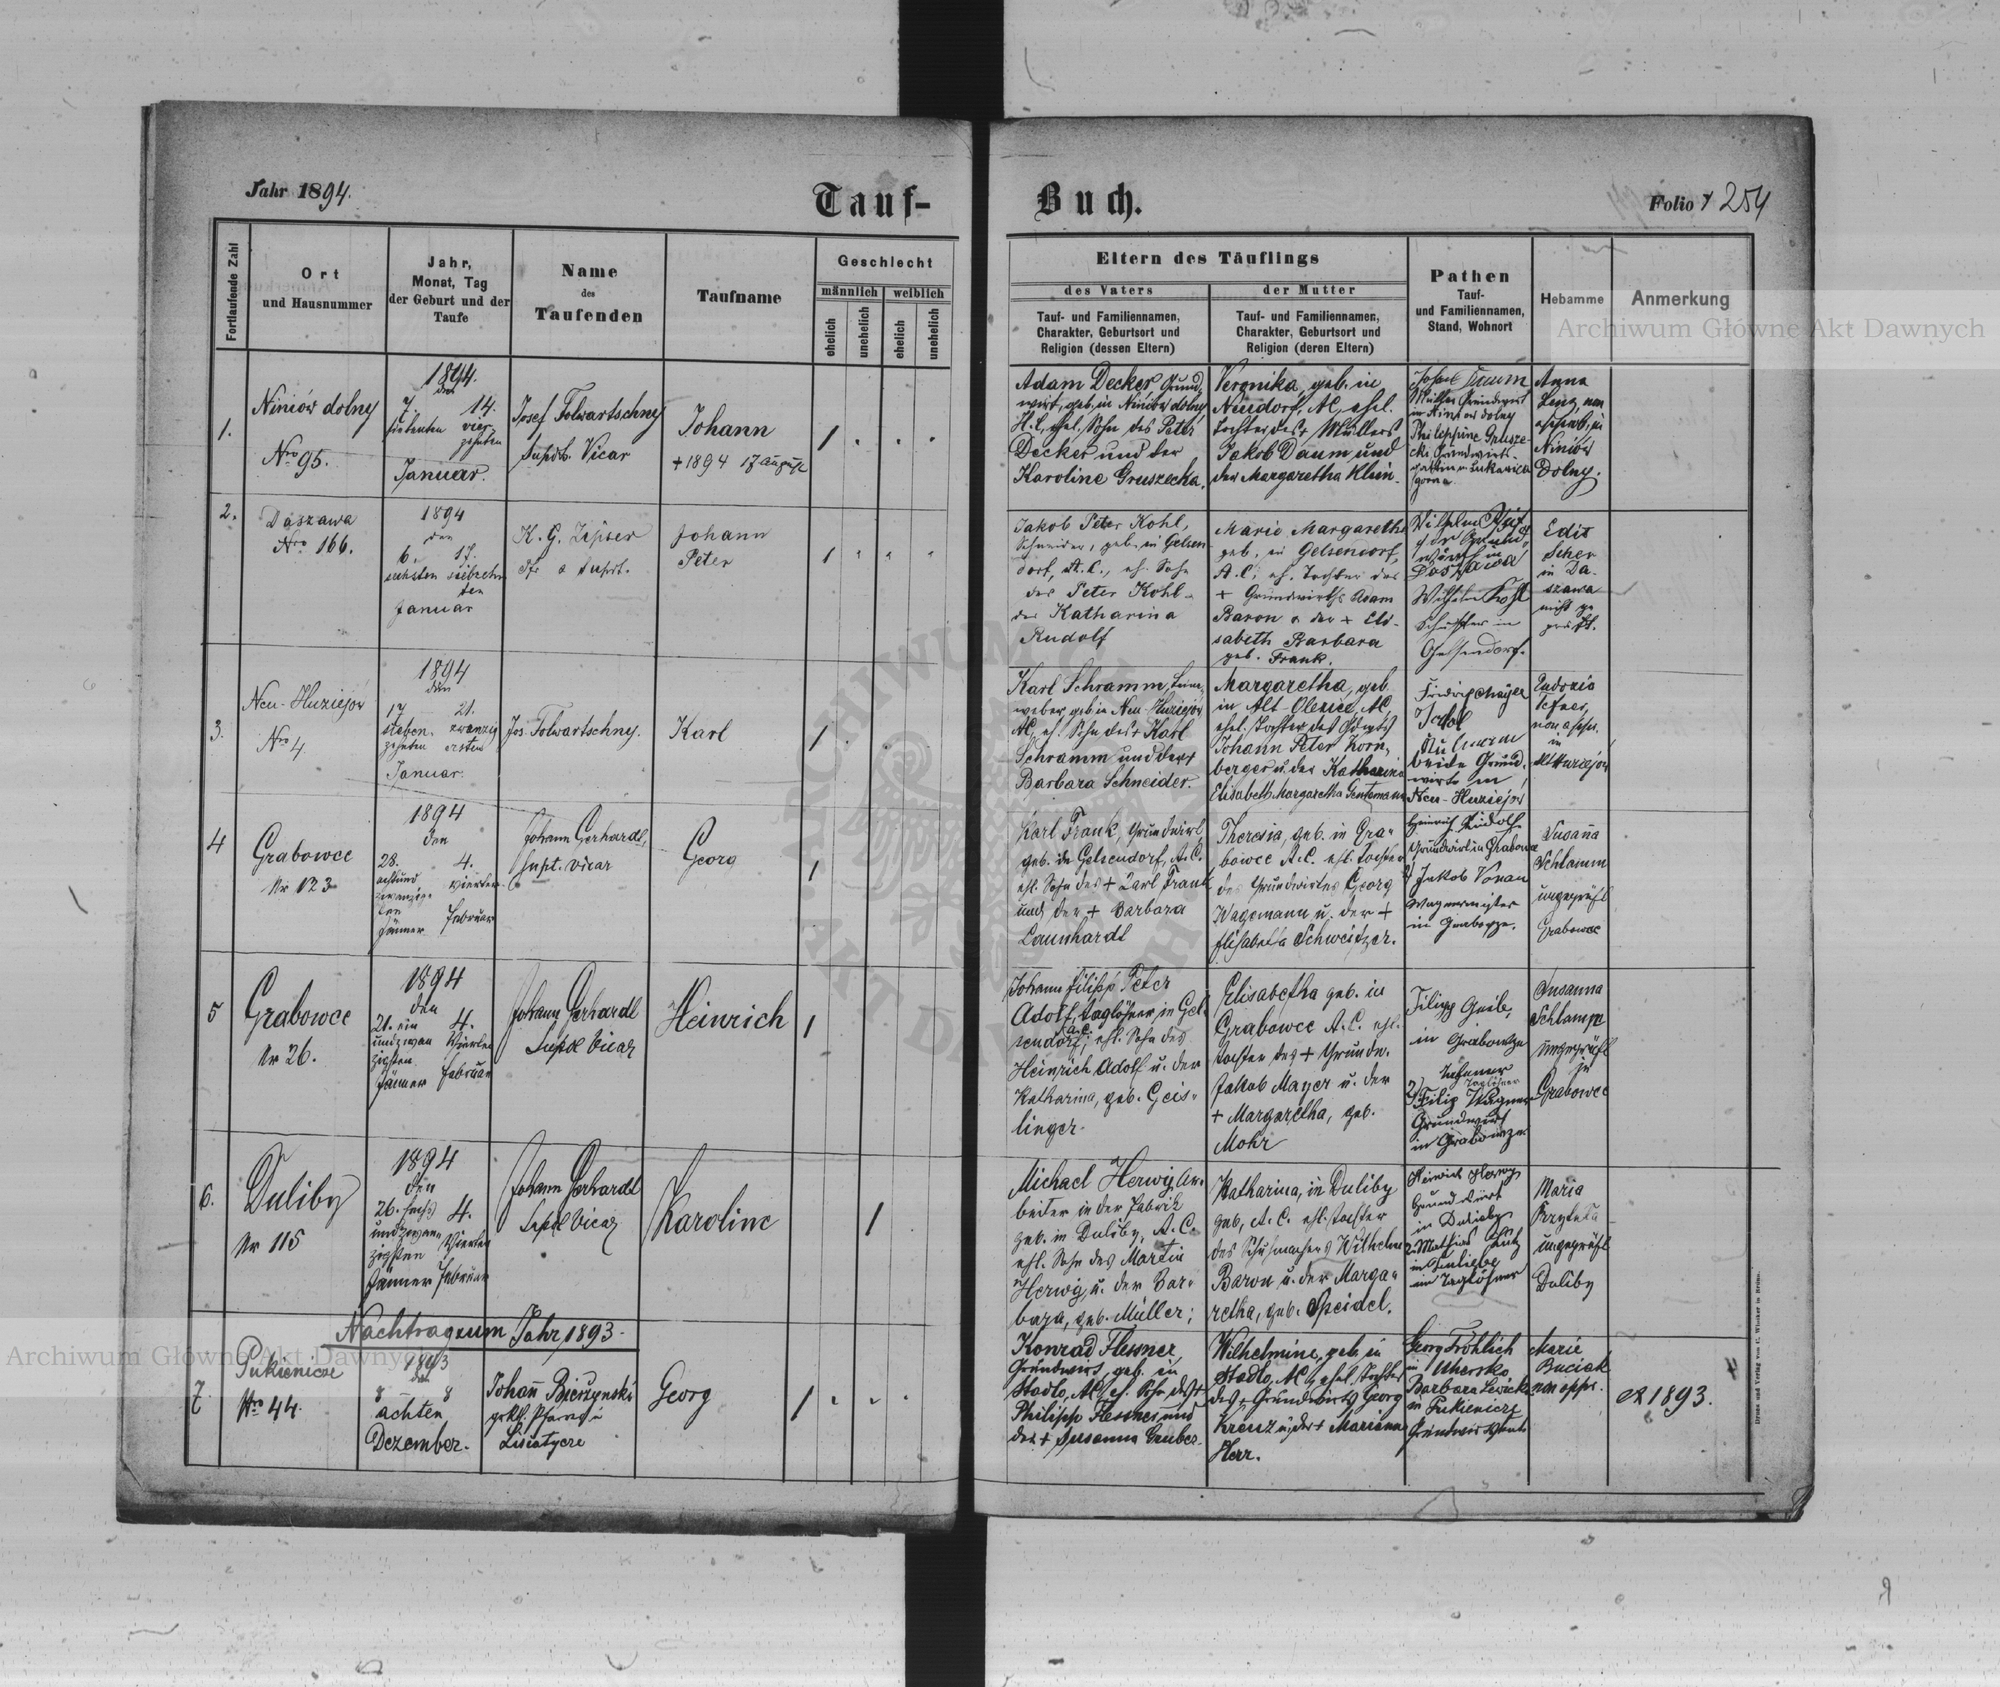 Jahr 1894.
Tauf-
Buch.
Folio 254
Fortlaufende Zahl
Ort
und Hausnummer
Jahr,
Monat, Tag
der Geburt und der
Taufe
Name
des
Taufenden
Taufname
Geschlecht
männlich
weiblich
ehelich
unehelich
ehelich
unehelich
Eltern des Täuflings
des Vaters
Tauf- und Familiennamen,
Charakter, Geburtsort und
Religion (dessen Eltern)
der Mutter
Tauf- und Familiennamen,
Charakter, Geburtsort und
Religion (deren Eltern)
Pathen
Tauf-
und Familiennamen,
Stand, Wohnort
Hebamme
Anmerkung
Archiwum Główne Akt Dawnych
1.
Niniów dolny
Nro 95.
1894.
den
7. 14.
siebenten vier-
zehnten
Januar.
Josef Folwartschny
Supdt. Vicar
Johann
+ 1894 17 August
1
Adam Decker Grund-
wirt, geb. in Niniów dolny
H.C. ehel. Sohn des Peter
Decker und der
Karoline Gruszecka.
Veronika, geb. in
Neudorf, AC, ehel.
Tochter des + Müllers
Jakob Daum und
der Margaretha Klein.
in Niniow dolny
Philippine Grusze-
cka Grundwirts-
gattin in Lukawica
gorna
Anna
Lenz, non
approb. in
Niniów
Dolny.
2.
Daszawa
Nro 166.
1894
den
6. 17.
sechsten siebzehn
ten
Januar
K. G. Zipser
Pfr & Supdt.
Johann
Peter
1
Jakob Peter Kohl,
Schneider, geb. in Gelsen
dorf, A.C., eh. Sohn
des Peter Kohl u.
der Katharina
Rudolf
Marie Margarethe
geb. in Gelsendorf,
A.C., eh. Tochter des
+ Grundwirths Adam
Baron & der + Eli-
sabeth Barbara
geb. Frank.
Wilhelm
Grund-
wirth in
Daszawa
Wilhelm Kohl
Schuster in
Gelsendorf.
Edit
Scher
in Da-
szawa
nicht ge
prüft.
3.
Neu-Huziejow
Nro 4
1894
den
17 21.
sieben- zwanzig
zehnten ersten
Januar.
Jos. Folwartschny.
Karl
1
Karl Schramm, Leine-
weber geb. in Neu-Huziejow
AC, eh. Sohn des + Karl
Schramm und der +
Barbara Schneider.
Margaretha, geb.
in Alt Oleksice, AC
ehel. Tochter des
Johann Peter Korn-
berger u. der Katharina
Elisabeth Margaretha Gentemann
Jakob
beide Grund-
wirte in
Neu-Huziejów
Eudoxia
Tefner,
non appr.
in
Alt Huziejow
4
Grabowce
Nr 123
1894
den
28. 4.
achtund
zwanzigs- vierten
ten
Jänner Februar
Johann Gerhardt,
Supt. Vicar
Georg
1
Karl Frank, Grundwirt
geb. in Gelsendorf, A.C.
ehl. Sohn des + Karl Frank
und der + Barbara
Launhardt
Theresia, geb. in Gra-
bowce A.C. ehl. Tochter
des Grundwirtes Georg
Wagemann u. der +
Elisabetha Schweitzer.
Heinrich Rudolf
Grundwirt in Grabowce
2) Jakob Vonau
Wagnermeister
in Grabowce.
Susanna
Schlamm
ungeprüft
Grabowce
5
Grabowce
Nr 26.
1894
den
21. ein 4.
undzwan Vierten
zigsten
Jänner Februar
Johann Gerhardt
Supdt Vicar
Heinrich
1
Johann Filipp Peter
Adolf, Taglöhner in Gel-
A.C.
sendorf; ehl. Sohn des
Heinrich Adolf u. der
Katharina, geb. Geis-
linger.
Elisabetha geb. in
Grabowce A.C. ehl.
Tochter des + Grundw.
Jakob Mayer u. der
+ Margaretha, geb.
Mohr
Filipp Geib,
in Grabowce
Taglöhner
2) Filip Wagner
Grundwirt
in Grabowce
Susanna
Schlampe
ungeprüft
zu
Grabowce
6.
Duliby
Nr 115
1894
den
26. sechs 4.
undzwan Vierten
zigsten
Jänner Februar
Johann Gerhardt
Supdt Vicar
Karoline
1
Michael Herwig, Ar-
beiter in der Fabrik
geb. in Duliby, A.C.
ehl. Sohn des Martin
Herwig u. der Bar-
bara, geb. Müller;
Katharina, in Duliby
geb., A.C. ehl. Tochter
des Schuhmachers Wilhelm
Baron u. der Marga-
retha, geb. Speidel.
Heinrich Herwig
Grundwirt
in Duliby
2. Mathias
in Duliby
ein Taglöhner
Maria
ungeprüft
Duliby
Nachtrag zum Jahr 1893.
7
Pukienicze
Nro 44.
1893
den
8 8
achten
Dezember.
Johann Bieszynski
grkth. Pfarrer in
Lisiatycze
Georg
1
Konrad Flessner
Grundwirt, geb. in
Stadlo, AC, eh. Sohn des +
Philipp Flessner und
der + Susanna Gruber.
Wilhelmine, geb. in
Stadlo, AC, ehel. Tochter
des + Grundwirts Georg
Kreuz u. der + Marianna
Herr.
Georg Fröhlich
in Uhersko
Barbara Lewicka
in Pukienicze
Marie
Buciak
non appr.
ex 1893.
Archiwum Główne Akt Dawnych
Druck und Verlag von C. Winiker in Brünn.